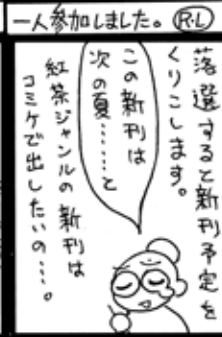 一人参加しました。 R・L
落選すると新刊予定を
くりこします。
この新刊は
次の夏………と
紅茶ジャンルの新刊は
コミケで出したいの…。